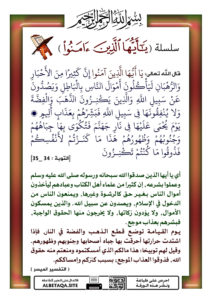 بسم الله الرحمن الرحيم
سلسلة ( يَٰٓأَيُّهَا ٱلَّذِينَ ءَامَنُوٓا۟ )
قال الله تعالى: يَا أَيُّهَا الَّذِينَ آمَنُوا إِنَّ كَثِيرًا مِنَ الْأَحْبَارِ
وَالرُّهْبَانِ لَيَأْكُلُونَ أَمْوَالَ النَّاسِ بِالْبَاطِلِ وَيَصُدُّونَ
عَنْ سَبِيلِ اللَّهِ وَالَّذِينَ يَكْنِزُونَ الذَّهَبَ وَالْفِضَّةَ
وَلَا يُنْفِقُونَهَا فِي سَبِيلِ اللَّهِ فَبَشِّرْهُمْ بِعَذَابٍ أَلِيمٍ
يَوْمَ يُحْمَى عَلَيْهَا فِي نَارِ جَهَنَّمَ فَتُكْوَى بِهَا جِبَاهُهُمْ
وَجُنُوبُهُمْ وَظُهُورُهُمْ هَذَا مَا كَنَزْتُمْ لِأَنْفُسِكُمْ
فَذُوقُوا مَا كُنْتُمْ تَكْنِزُونَ
[التوبة : 34 _35]
أي يا أيها الذين صدقوا الله سبحانه ورسوله صلى الله عليه وسلم
وعملوا بشرعه , إن كثيرا من علماء أهل الكتاب وعبادهم ليأخذون
أموال الناس بغير حق كالرشوة وغيرها, ويمنعون الناس من
الدخول في الإسلام, ويصدون عن سبيل الله . والذين يمسكون
الأموال , ولا يؤدون زكاتها, ولا يخرجون منها الحقوق الواجبة,
فبشرهم بعذاب موجع .
يوم القيامة توضع قطع الذهب والفضة في النار, فإذا
اشتدت حرارتها أحرقت بها جباه أصحابها وجنوبهم وظهورهم.
وقيل لهم توبيخا: هذا مالكم الذي أمسكتموه ومنعتم منه حقوق
الله , فذوقوا العذاب الموجع; بسبب كنزكم وإمساككم.
[ التفسير الميسر ]
ALBETAQA.SITE